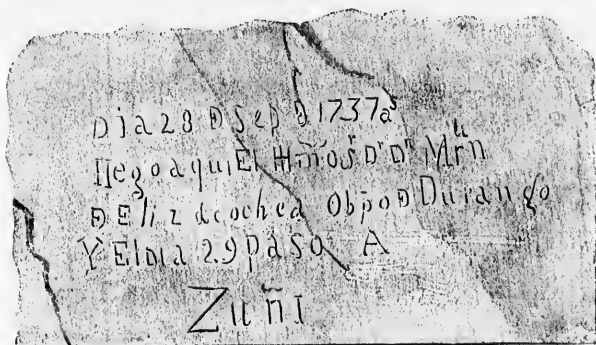 Dia 28 Đ Sep Đ 1737 aˢ
llego aqui El Hm̃o Sʳ Dʳ Dⁿ Mrᵗⁿ
Đ Elizdcochea Obp̃o Đ Durango
Y El Dia 29 paso A
Zuñi